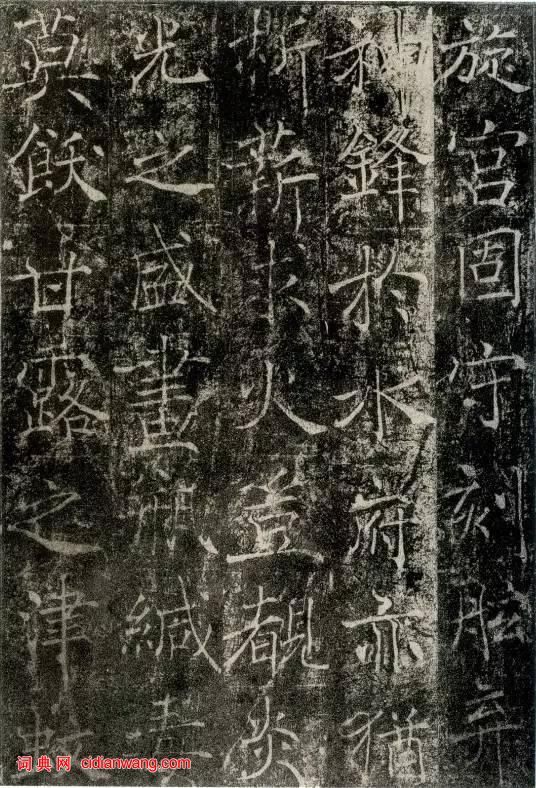 旋宫固守刻舩弃
神鋒扵水府亦猶
析薪求火豈覩炎
光之盛畫瓶緘毒
莫飫甘露之津
词典网 cidianwang.com